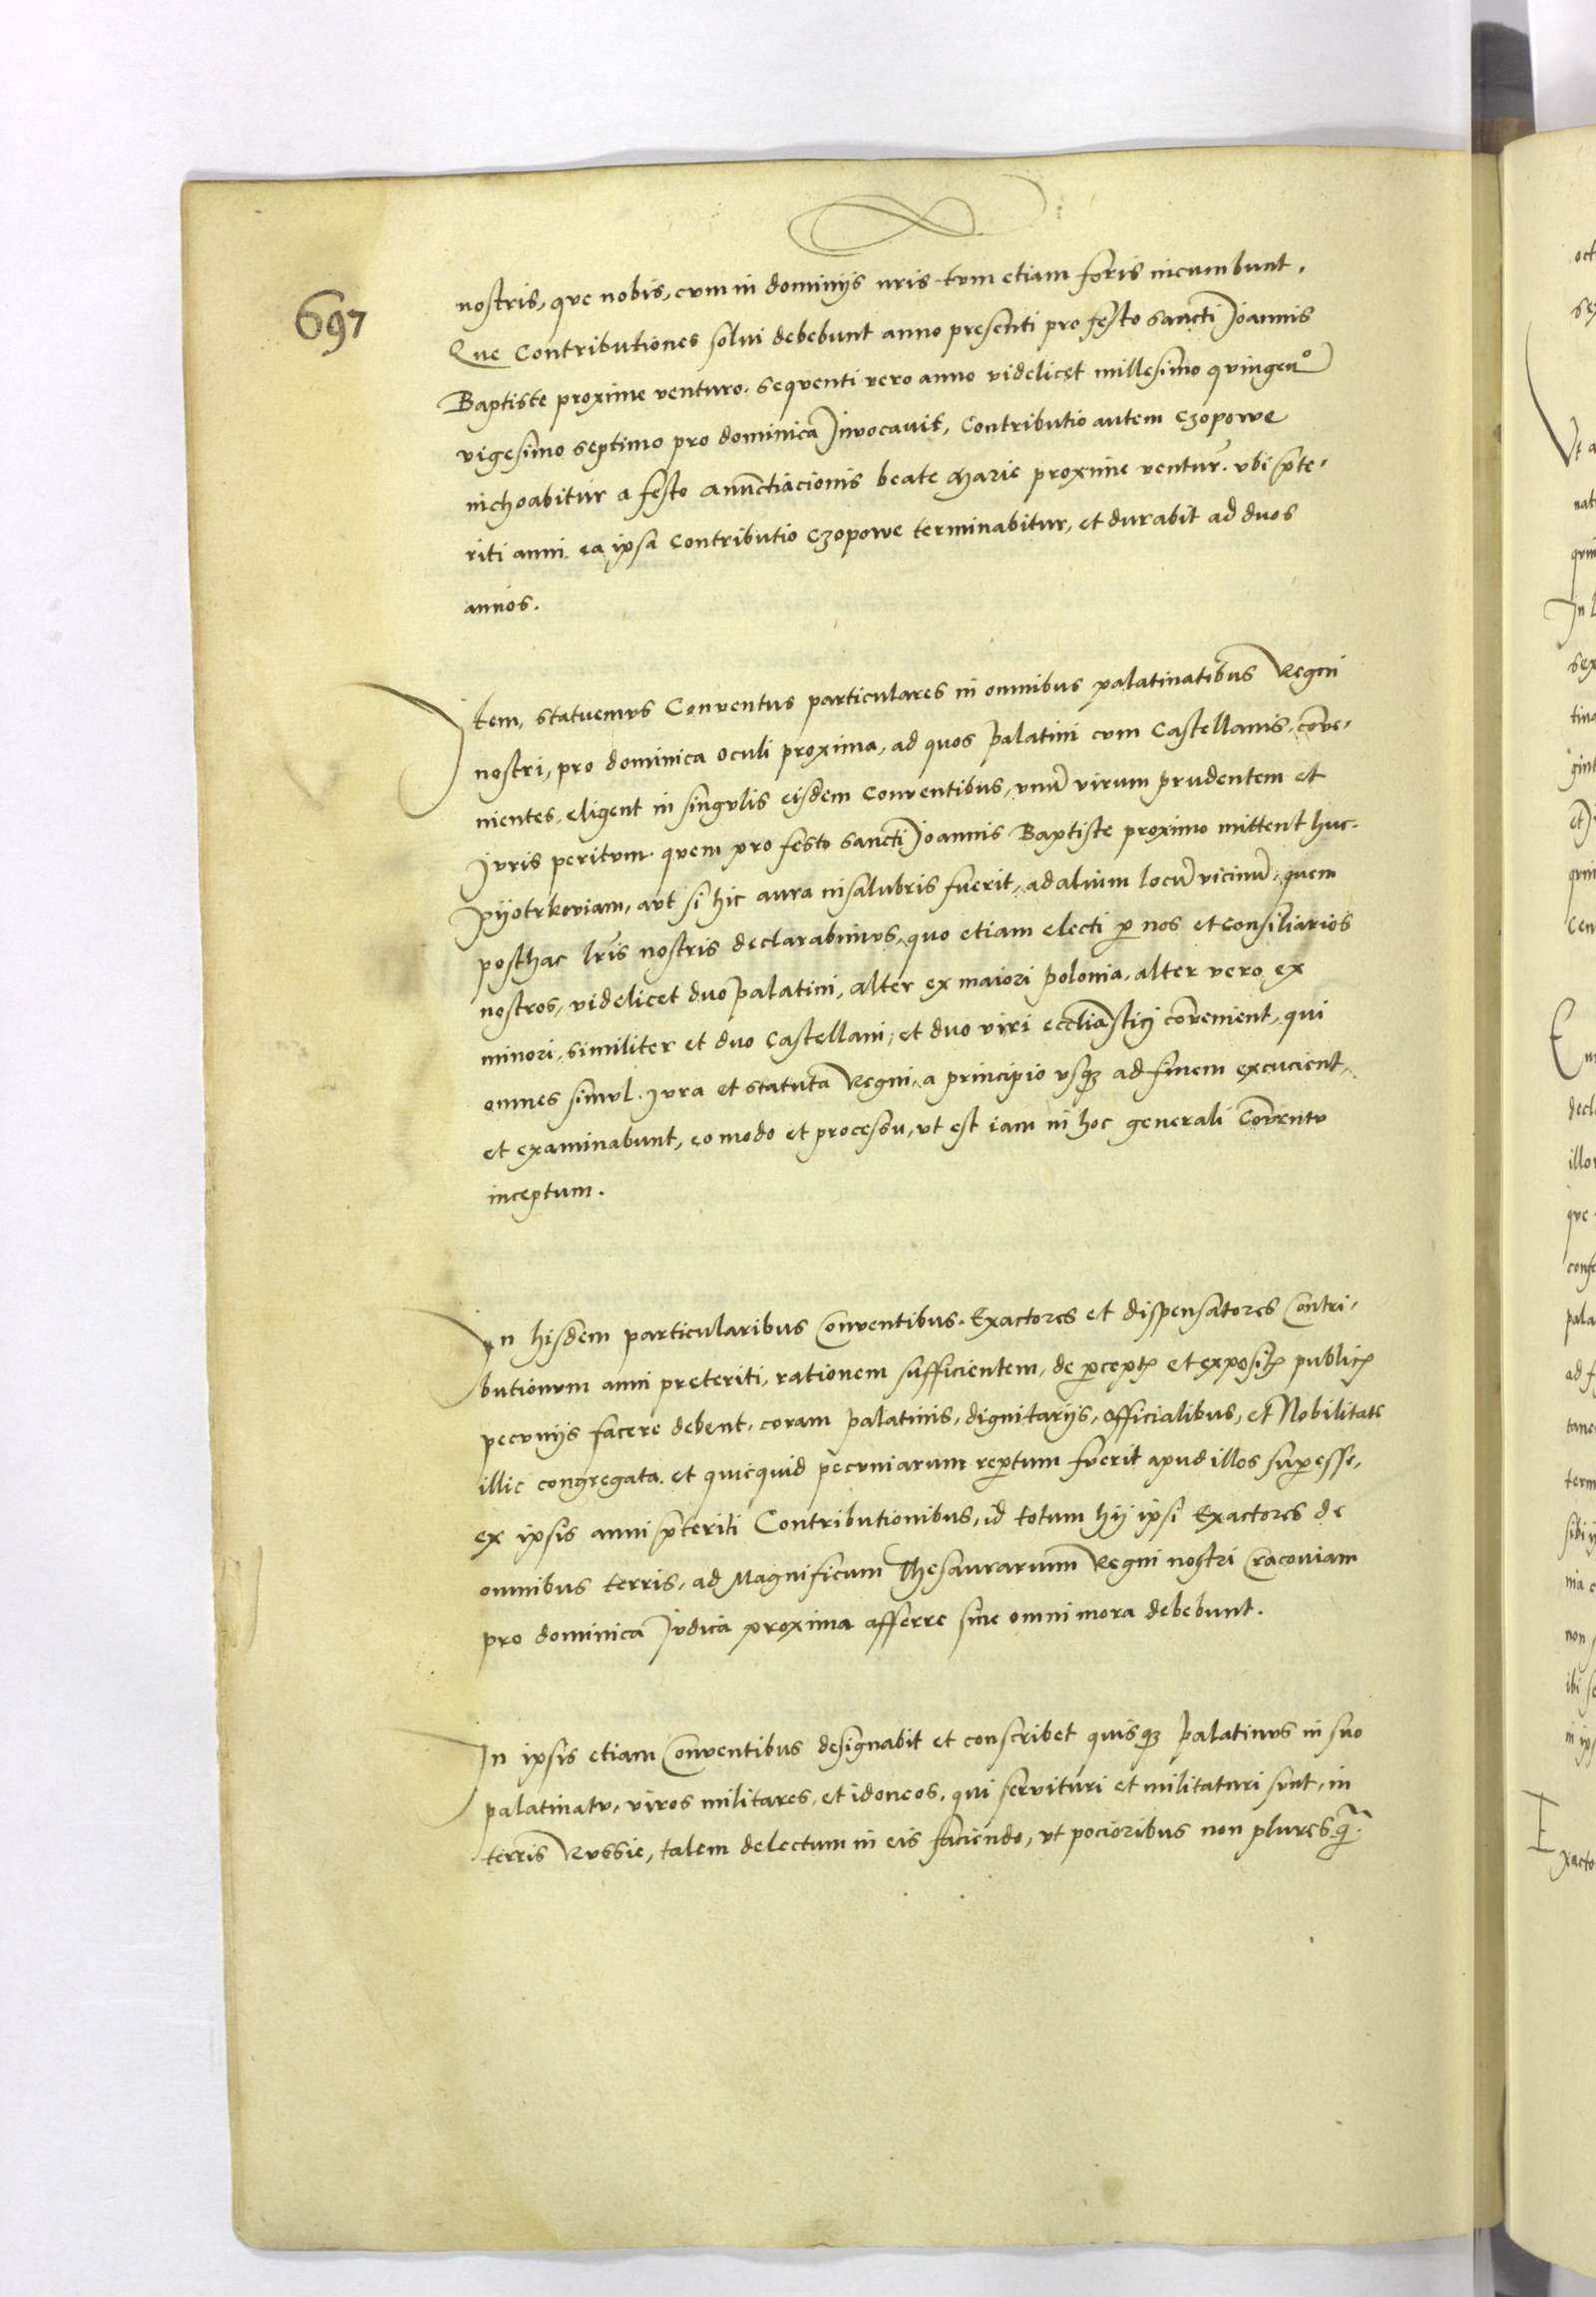 697
nostris, que nobis, cum in dominijs nr̃is tum etiam foris incumbunt.
Que Contributiones solui debebunt anno presenti pro festo sancti Joannis
Baptiste proxime venturo. sequenti vero anno videlicet millesimo quingenº
vigesimo septimo pro dominica Jnvocauit, Contributio autem Czopowe
inchoabitur a festo anunctiacionis beate Marie proxime ventur̃. vbi p̃te-
riti anni ea ipsa Contributio Czopowe terminabitur, et durabit ad duos
annos.
Jtem, statuemus Conventus particulares in omnibus palatinatibus Regni
nostri, pro dominica Oculi proxima, ad quos palatini cum Castellanis, cõve-
nientes, eligent in singulis eisdem Conventibus, vnũ virum prudentem et
Juris peritum. quem pro festo sancti Joannis Baptiste proximo mittent huc
Pyotrkoviam, aut si hic aura insalubris fuerit, ad alium locũ vicinũ, quem
posthac lr̃is nostris declarabimus, quo etiam electi ꝑ nos et Consiliarios
nostros, videlicet duo palatini, alter ex maiori polonia, alter vero ex
minori, similiter et duo Castellani, et duo viri eccl̃iastici cõvenient, qui
omnes simul. Jura et statuta Regni, a principio vsqȝ ad finem excucient,
et examinabunt, eo modo et processu, vt est iam in hoc generali Cõventu
inceptum.
Jn hisdem particularibus Conventibus. Exactores et dispensatores Contri-
butionum anni preteriti, rationem sufficientem, de ꝑceptꝭ et expositꝭ publicꝭ
pecunijs facere debent, coram palatinis, dignitarijs, officialibus, et Nobilitate
illic congregata. et quicquid pecuniarum reꝑtum fuerit apud illos suꝑesse,
ex ipsis anni p̃teriti Contributionibus, id totum hij ipsi Exactores de
omnibus terris, ad Magnificum Thesaurarium Regni nostri Cracoviam
pro dominica Judica proxima afferre sine omni mora debebunt.
Jn ipsis etiam Conventibus designabit et conscribet quisqȝ palatinus in suo
palatinatu, viros militares, et idoneos, qui servituri et militaturi sunt, in
terris Russie, talem delectum in eis faciendo, vt pocioribus non plures q̃